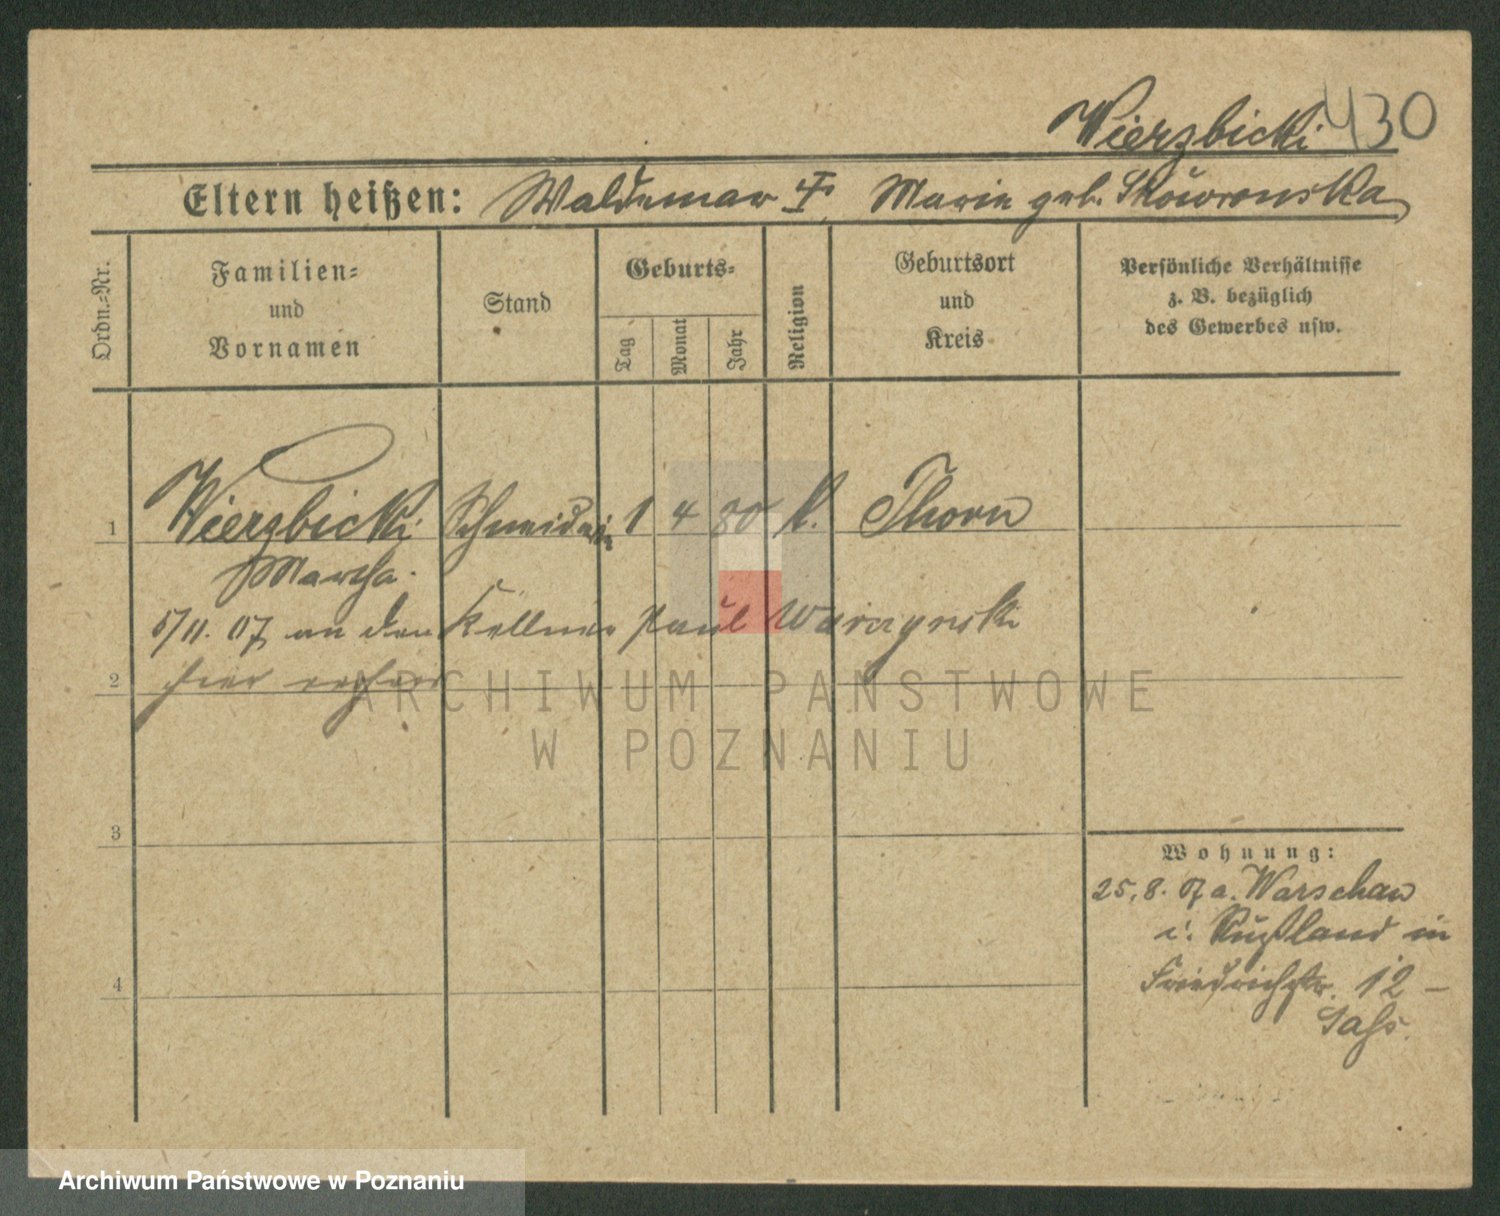 Wierzbicki 430
Eltern heißen: Waldemar †, Marie geb. Skowronska
Ordn.-Nr.
Familien-
und
Vornamen
Stand
Geburts-
Tag
Monat
Jahr
Religion
Geburtsort
und
Kreis
Persönliche Verhältnisse
z. B. bezüglich
des Gewerbes usw.
1 Wierzbicki Schneiderin 1 4 80 k. Thorn
Martha.
5/11. 07 an den Kellner Paul
hier
2
3
4
Wohnung:
25.8.07 a. Warschau
i. Rußland in
Friedrichstr. 12 –
ARCHIWUM PAŃSTWOWE
W POZNANIU
Archiwum Państwowe w Poznaniu